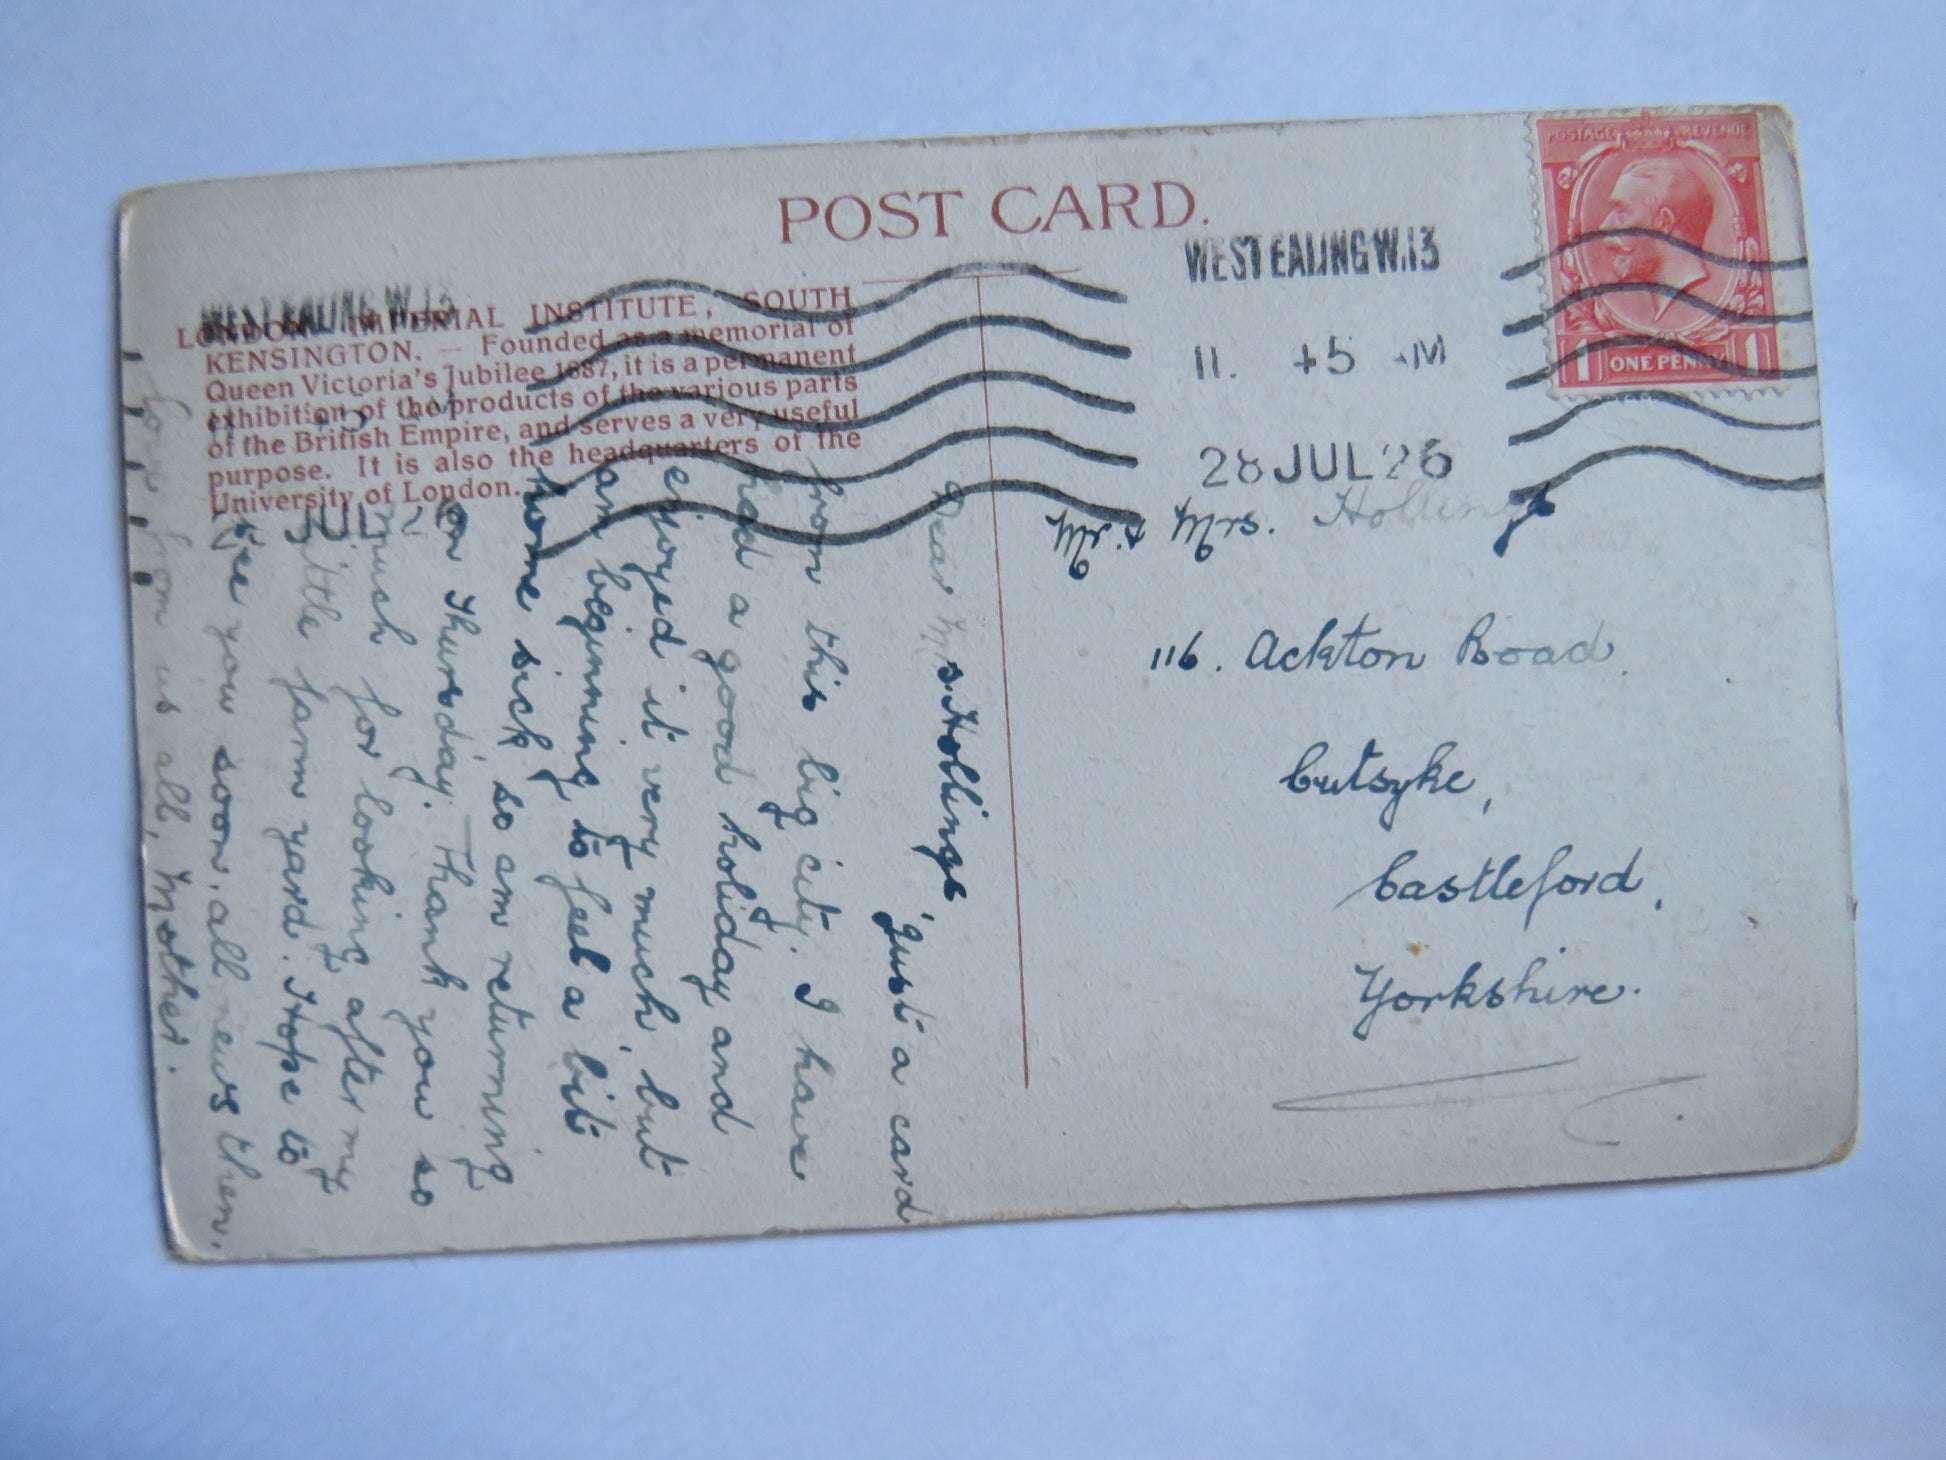 POST CARD.
WEST EALING W.13
11. 45 AM
28 JUL 26
POSTAGE REVENUE
1 ONE PENNY 1
WEST EALING W.13
JUL 26
LONDON. IMPERIAL INSTITUTE, SOUTH
KENSINGTON. — Founded as a memorial of
Queen Victoria's Jubilee 1887, it is a permanent
exhibition of the products of the various parts
of the British Empire, and serves a very useful
purpose. It is also the headquarters of the
University of London.
Mr. & Mrs. Hollings
116. Ackton Road.
Cutsyke,
Castleford,
Yorkshire.
Dear Mrs. Hollings,
Just a card
from this big city. I have
had a good holiday and
enjoyed it very much, but
am beginning to feel a bit
home sick so am returning
on Thursday. Thank you so
much for looking after my
little farm yard. Hope to
see you soon, all news then.
Love from us all, Mother.